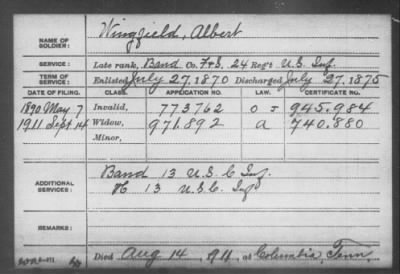 NAME OF SOLDIER: Wingfield, Albert
SERVICE: Late rank, Band Co. F+S, 24 Reg't U.S. Inf.
TERM OF SERVICE: Enlisted July 27, 1870 Discharged July 27, 1875
DATE OF FILING. CLASS. APPLICATION NO. LAW. CERTIFICATE NO.
1890 May 7 Invalid, 773.762 945.984
1911 Sept 14 Widow, 971.892 a 740.880
Minor,
ADDITIONAL SERVICES: Band 13 U.S.C Inf.
13 U.S.C. Inf
REMARKS:
Died Aug 14, 1911, at Columbia, Tenn